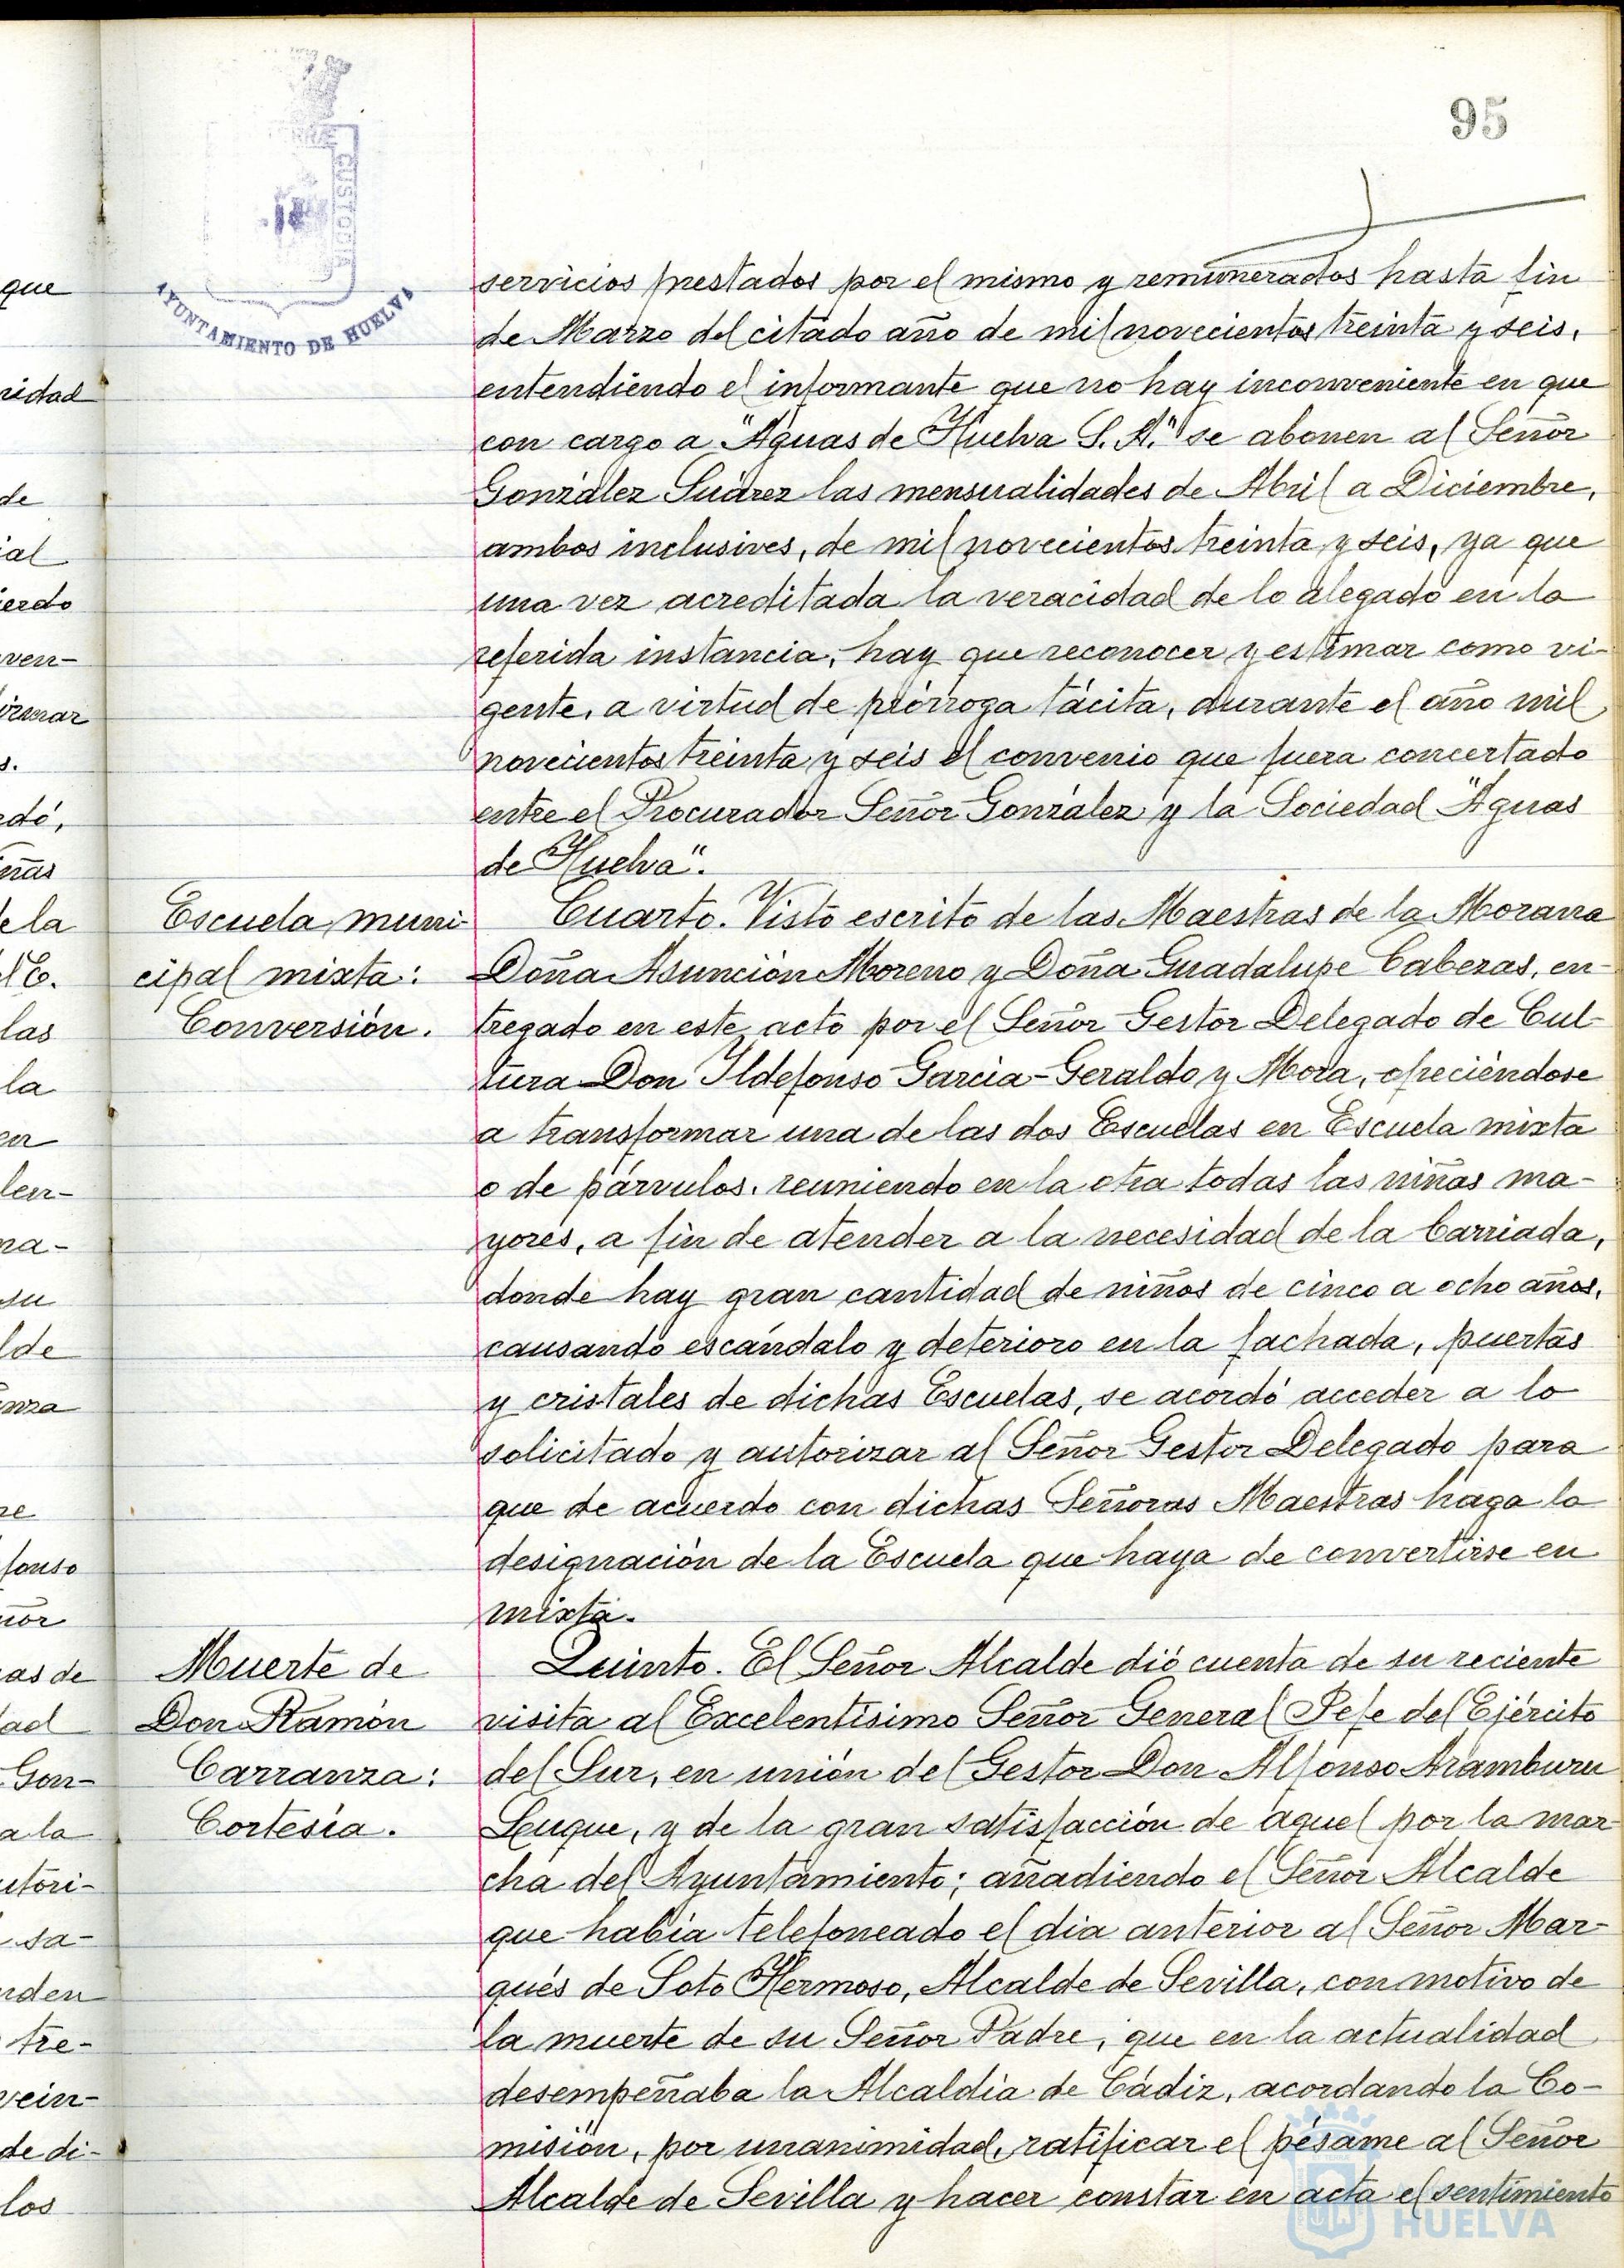 95
CUSTODIA
AYUNTAMIENTO DE HUELVA
servicios prestados por el mismo y remunerados hasta fin
de Marzo del citado año de mil novecientos treinta y seis,
entendiendo el informante que no hay inconveniente en que
con cargo a "Aguas de Huelva S. A." se abonen al Señor
González Suárez las mensualidades de Abril a Diciembre,
ambos inclusives, de mil novecientos treinta y seis, ya que
una vez acreditada la veracidad de lo alegado en la
referida instancia, hay que reconocer y estimar como vi-
gente, a virtud de prórroga tácita, durante el año mil
novecientos treinta y seis el convenio que fuera concertado
entre el Procurador Señor González y la Sociedad "Aguas
de Huelva".
Escuela muni-
cipal mixta:
Conversión.
Cuarto. Visto escrito de las Maestras de la Morana
Doña Asunción Moreno y Doña Guadalupe Cabezas, en-
tregado en este acto por el Señor Gestor Delegado de Cul-
tura Don Ildefonso García-Geraldo y Mora, ofreciéndose
a transformar una de las dos Escuelas en Escuela mixta
o de párvulos, reuniendo en la otra todas las niñas ma-
yores, a fin de atender a la necesidad de la barriada,
donde hay gran cantidad de niños de cinco a ocho años,
causando escándalo y deterioro en la fachada, puertas
y cristales de dichas Escuelas, se acordó acceder a lo
solicitado y autorizar al Señor Gestor Delegado para
que de acuerdo con dichas Señoras Maestras haga la
designación de la Escuela que haya de convertirse en
mixta.
Muerte de
Don Ramón
Carranza:
Cortesía.
Quinto. El Señor Alcalde dió cuenta de su reciente
visita al Excelentísimo Señor General Jefe del Ejército
del Sur, en unión del Gestor Don Alfonso Aramburu
Luque, y de la gran satisfacción de aquel por la mar-
cha del Ayuntamiento; añadiendo el Señor Alcalde
que había telefoneado el día anterior al Señor Mar-
qués de Soto Hermoso, Alcalde de Sevilla, con motivo de
la muerte de su Señor Padre, que en la actualidad
desempeñaba la Alcaldía de Cádiz, acordando la Co-
misión, por unanimidad, ratificar el pésame al Señor
Alcalde de Sevilla y hacer constar en acta el sentimiento
HUELVA